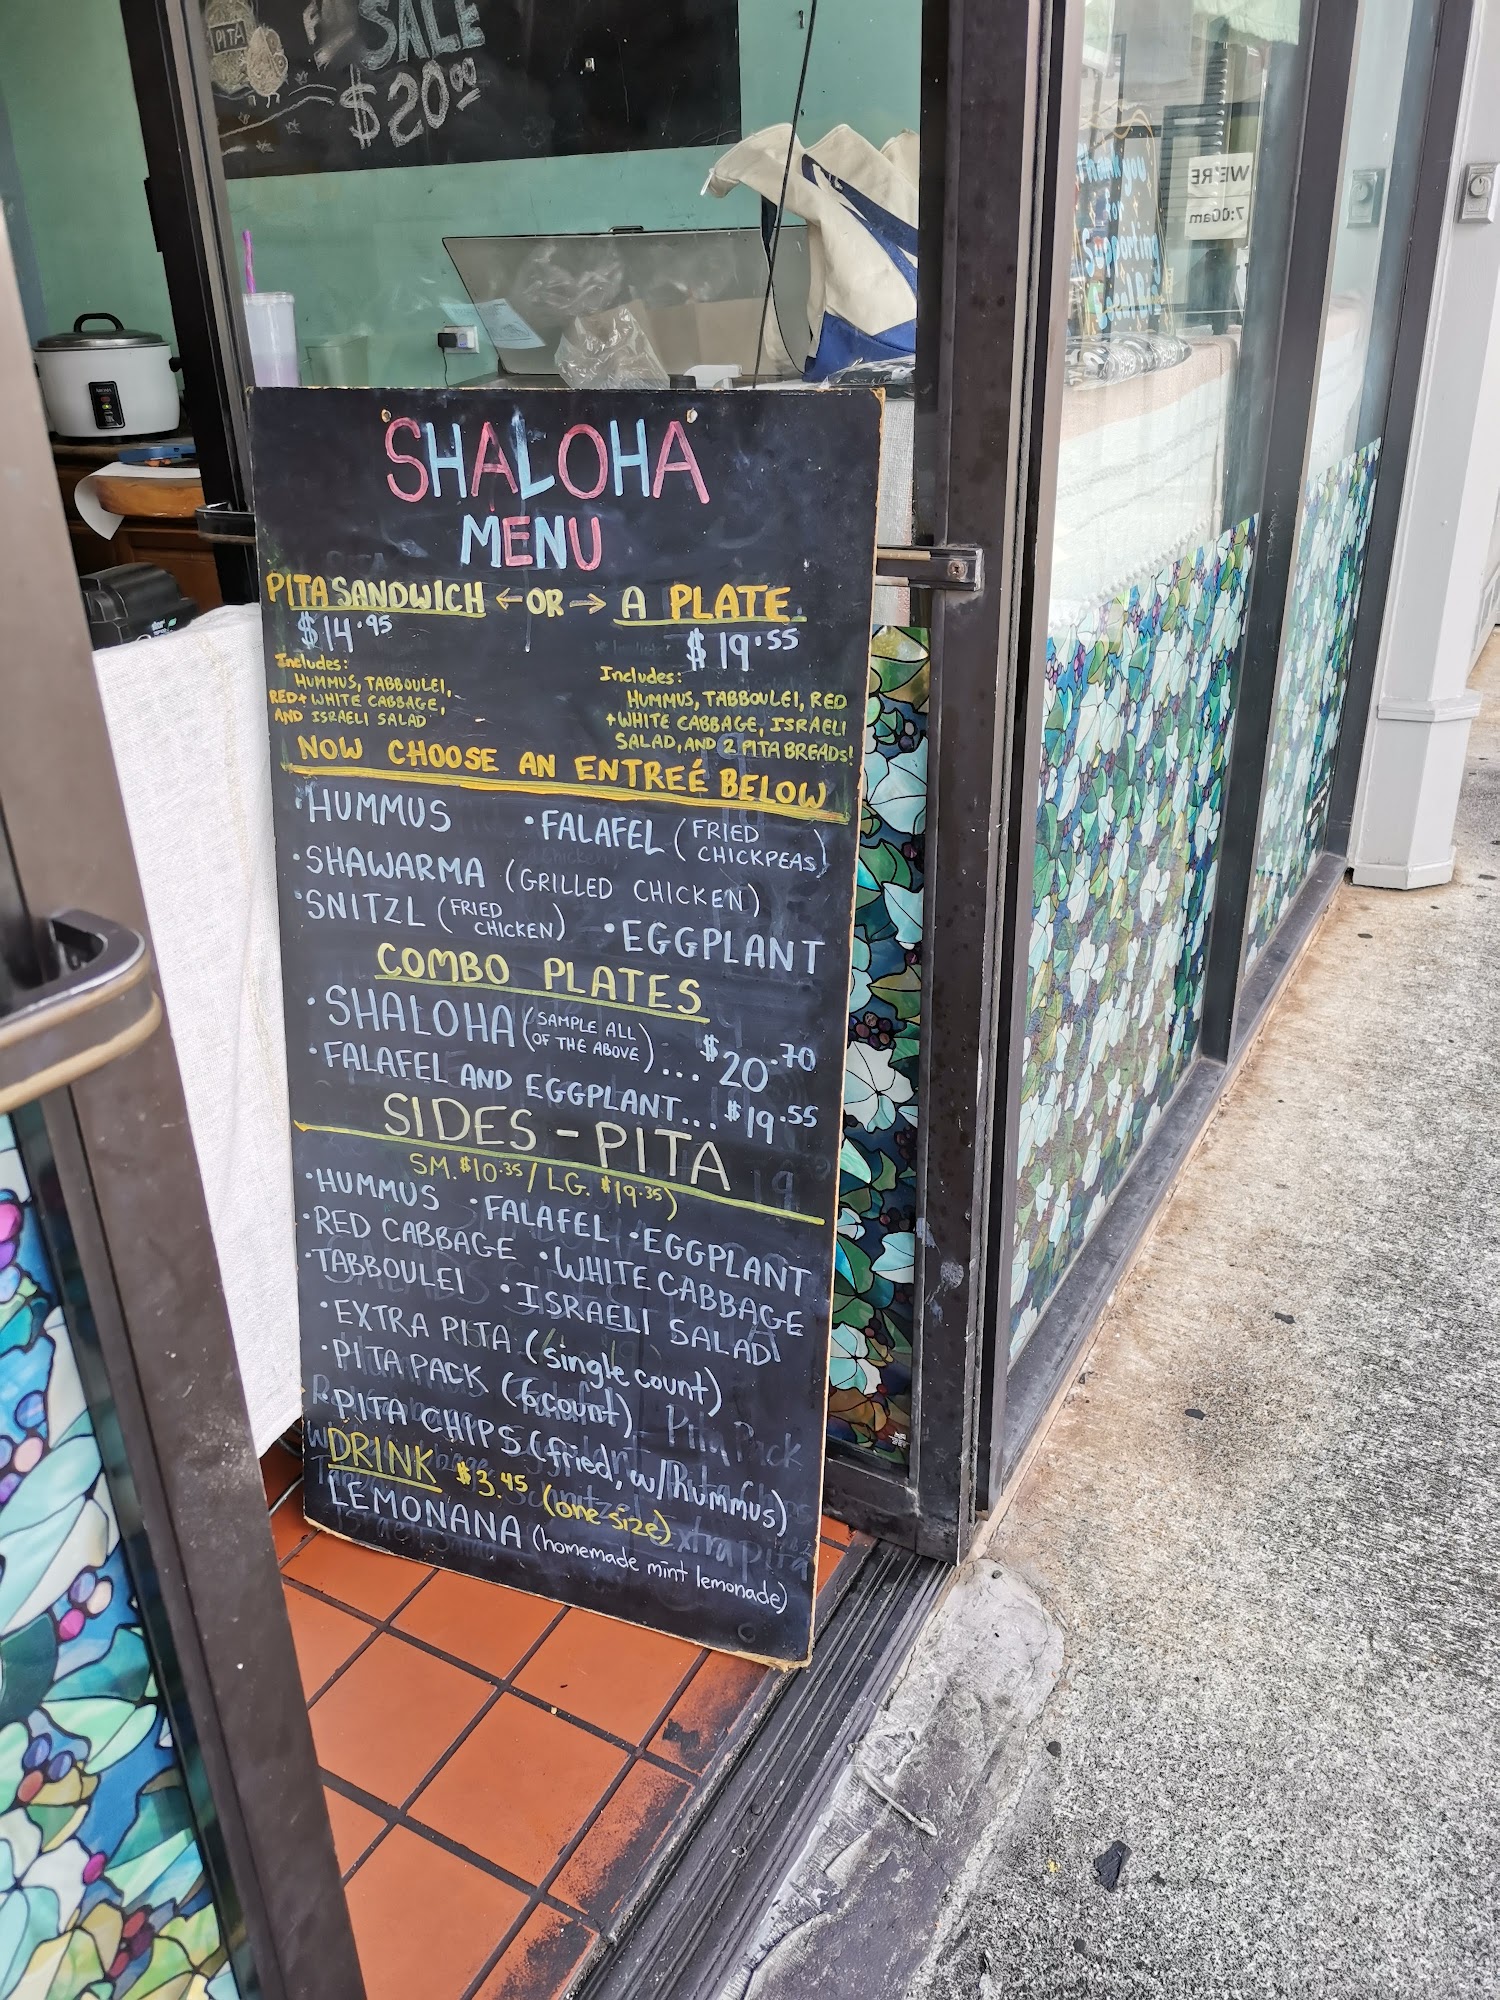 PITA
SALE
$20.00
WE'RE
7:00am
SHALOHA
MENU
PITA SANDWICH ← OR → A PLATE
$14.95
$19.55
Includes:
HUMMUS, TABBOULEI,
RED + WHITE CABBAGE,
AND ISRAELI SALAD
Includes:
HUMMUS, TABBOULEI, RED
+ WHITE CABBAGE, ISRAELI
SALAD, AND 2 PITA BREADS!
NOW CHOOSE AN ENTREÉ BELOW
• HUMMUS • FALAFEL (FRIED CHICKPEAS)
• SHAWARMA (GRILLED CHICKEN)
• SNITZL (FRIED CHICKEN) • EGGPLANT
COMBO PLATES
• SHALOHA (SAMPLE ALL OF THE ABOVE)... $20.70
• FALAFEL AND EGGPLANT... $19.55
SIDES - PITA
SM. $10.35 / LG. $19.35)
• HUMMUS • FALAFEL • EGGPLANT
• RED CABBAGE • WHITE CABBAGE
• TABBOULEI • ISRAELI SALAD
• EXTRA PITA (single count)
• PITA PACK (6 count)
• PITA CHIPS (fried, w/Hummus)
DRINK $3.45 (one size)
LEMONANA (homemade mint lemonade)
Pita Pack
Extra Pita